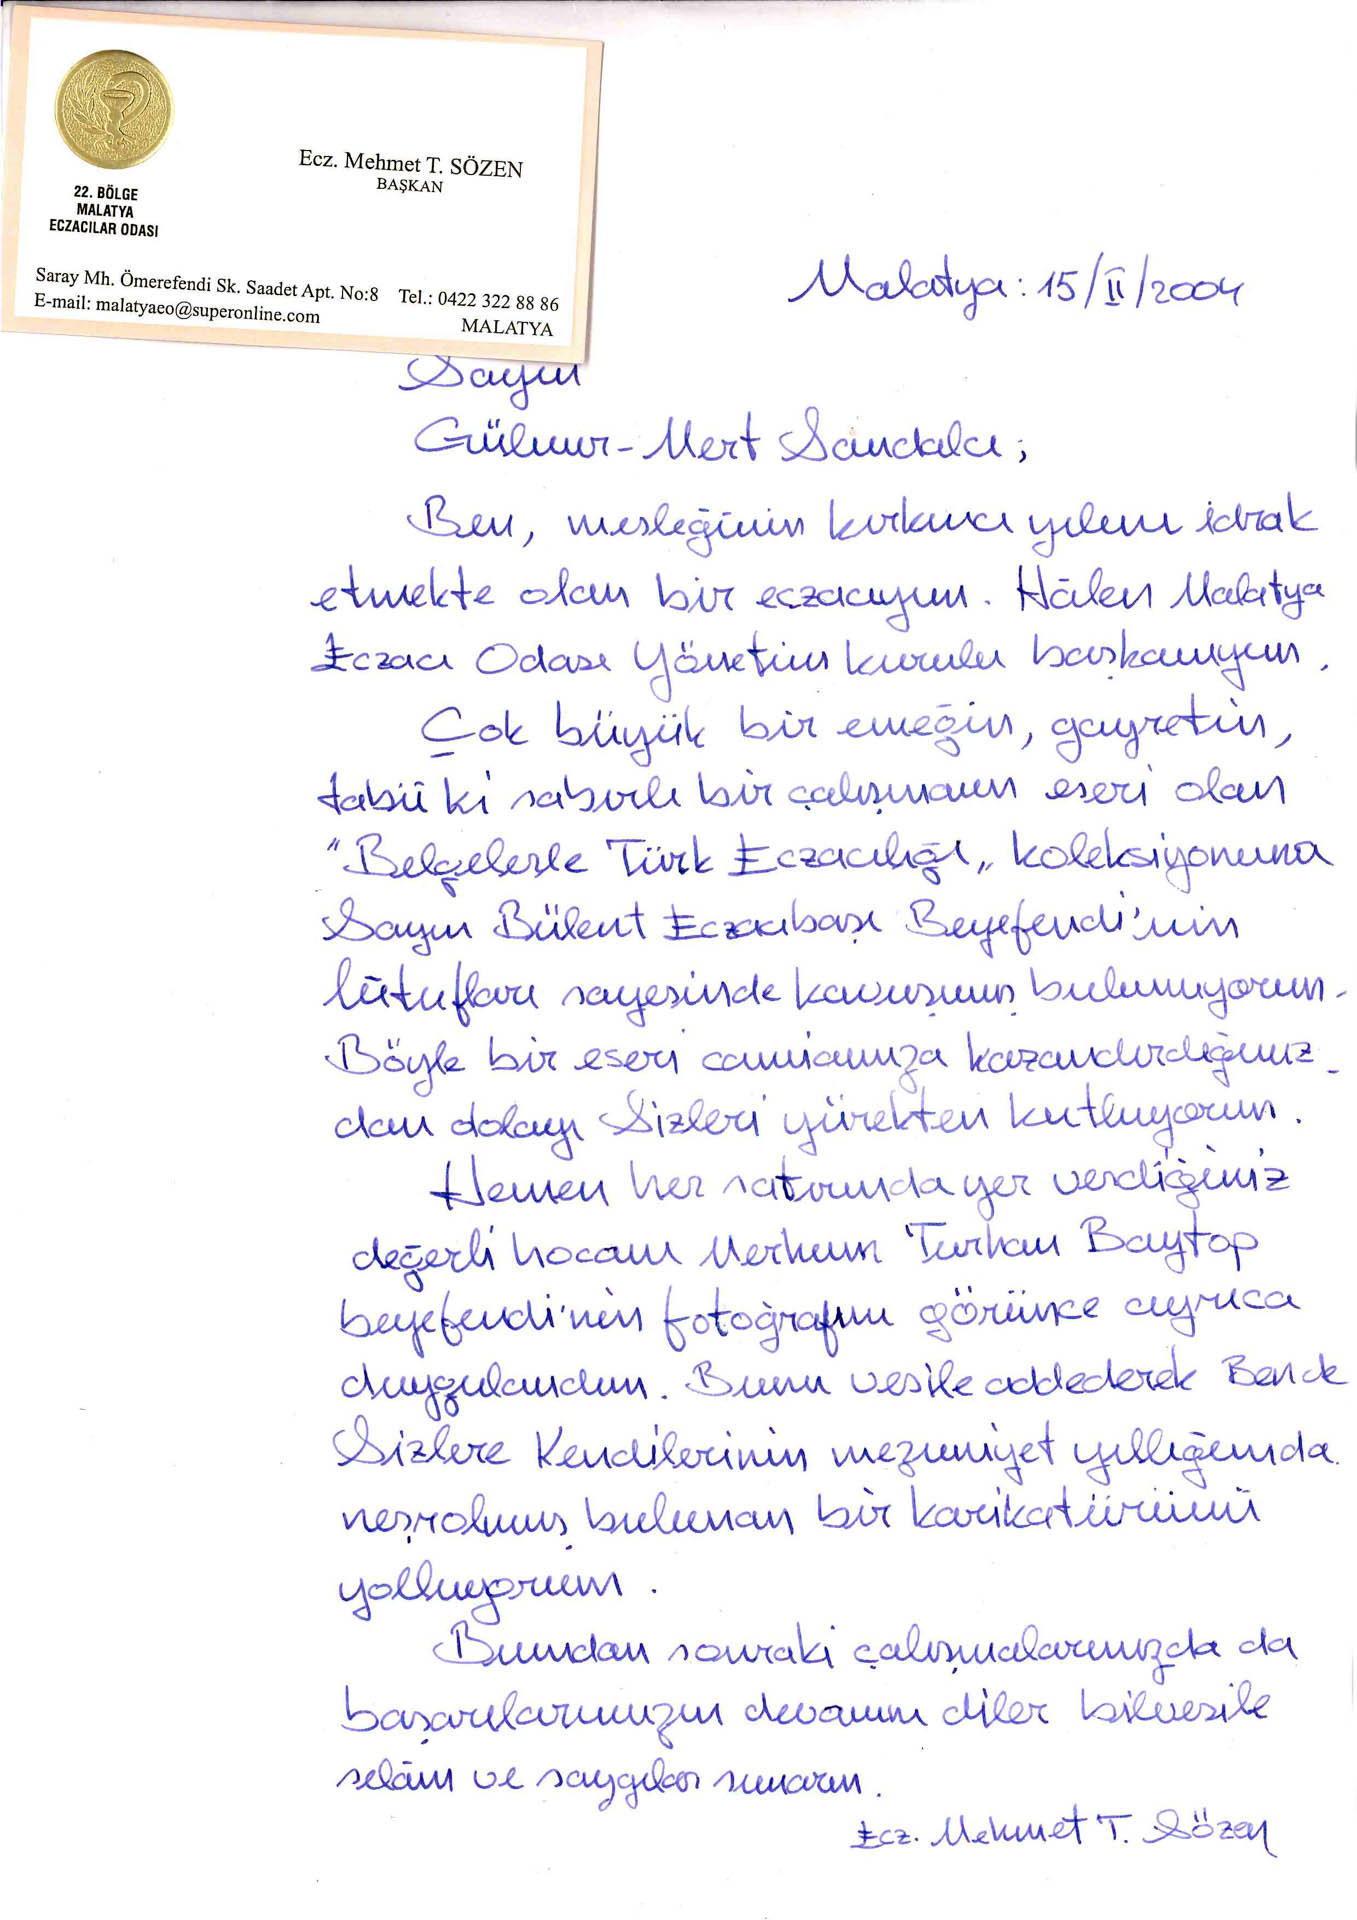 22. BÖLGE
MALATYA
ECZACILAR ODASI
Ecz. Mehmet T. SÖZEN
BAŞKAN
Saray Mh. Ömerefendi Sk. Saadet Apt. No:8 Tel.: 0422 322 88 86
E-mail: malatyaeo@superonline.com MALATYA
Malatya: 15/II/2004
Sayın
Gülnur-Mert Sandalcı;
Ben, mesleğinin kırkıncı yılını idrak
etmekte olan bir eczacıyım. Hâlen Malatya
Eczacı Odası Yönetim kurulu başkanıyım.
Çok büyük bir emeğin, gayretin,
tabii ki sabırlı bir çalışmanın eseri olan
"Belgelerle Türk Eczacılığı„ koleksiyonuna
Sayın Bülent Eczacıbaşı Beyefendi'nin
lütufları sayesinde kavuşmuş bulunuyorum.
Böyle bir eseri camiamıza kazandırdığınız-
dan dolayı Sizleri yürekten kutluyorum.
Hemen her satırında yer verdiğiniz
değerli hocam Merhum Turhan Baytop
beyefendi'nin fotoğrafını görünce ayrıca
duygulandım. Bunu vesile addederek Bende
Sizlere Kendilerinin mezuniyet yıllığımda
neşrolmuş bulunan bir karikatürünü
yolluyorum.
Bundan sonraki çalışmalarınızda da
başarılarınızın devamını diler bilvesile
selâm ve saygılar sunarım.
Ecz. Mehmet T. Sözen